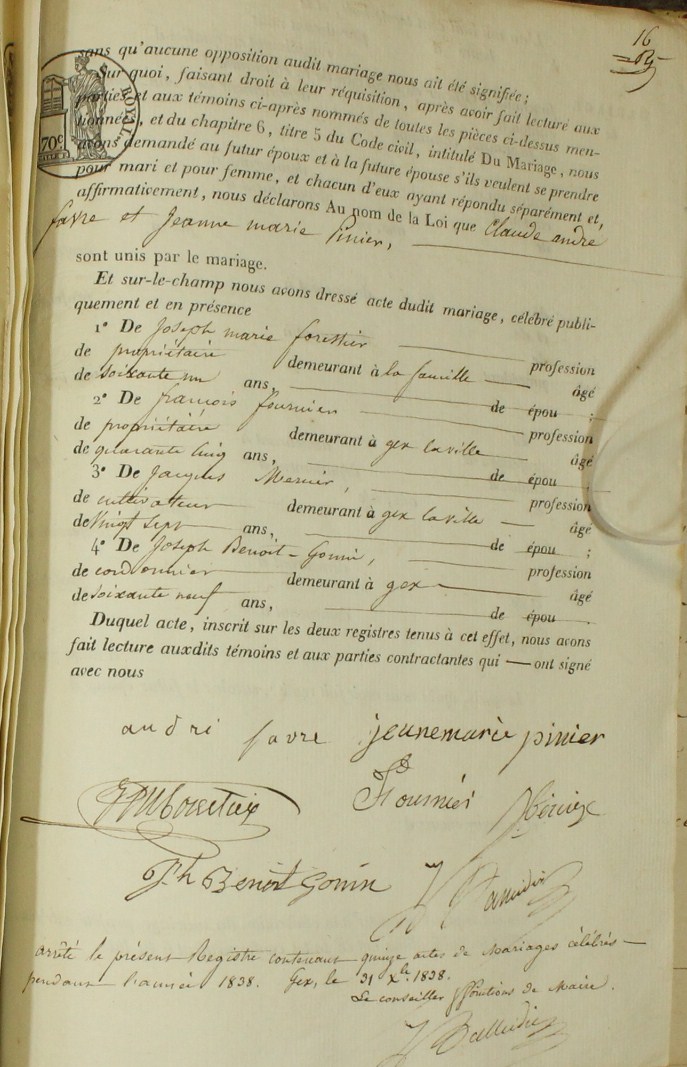 16
ROYAL
70c
sans qu'aucune opposition audit mariage nous ait été signifiée;
Sur quoi, faisant droit à leur réquisition, après avoir fait lecture aux
parties et aux témoins ci-après nommés de toutes les pièces ci-dessus men-
tionnées, et du chapitre 6, titre 5 du Code civil, intitulé Du Mariage, nous
avons demandé au futur époux et à la future épouse s'ils veulent se prendre
pour mari et pour femme, et chacun d'eux ayant répondu séparément et,
affirmativement, nous déclarons Au nom de la Loi que Claude andré
favre et Jeanne marie Pinier,
sont unis par le mariage.
Et sur-le-champ nous avons dressé acte dudit mariage, célébré publi-
quement et en présence
1° De Joseph marie forestier profession
de propriétaire demeurant à la âgé
de soixante un ans, de épou ;
2° De françois fournier profession
de propriétaire demeurant à gex laville âgé
de quarante cinq ans, de épou ;
3° De Jacques profession
de cultivatteur demeurant à gex laville âgé
de vingt sept ans, de épou ;
4° De Joseph Benoit-Gonin, profession
de cordonnier demeurant à gex âgé
de soixante neuf ans, de épou .
Duquel acte, inscrit sur les deux registres tenus à cet effet, nous avons
fait lecture auxdits témoins et aux parties contractantes qui ont signé
avec nous
andri favre jeunemarie pinier
Fournier
Jh Benoit Gonin
arrêté le présent Registre contenant quinze actes de Mariages célébrés
pendant l'année 1838. Gex, le 31 Xbre 1838.
Le conseiller ff fonctions de Maire.